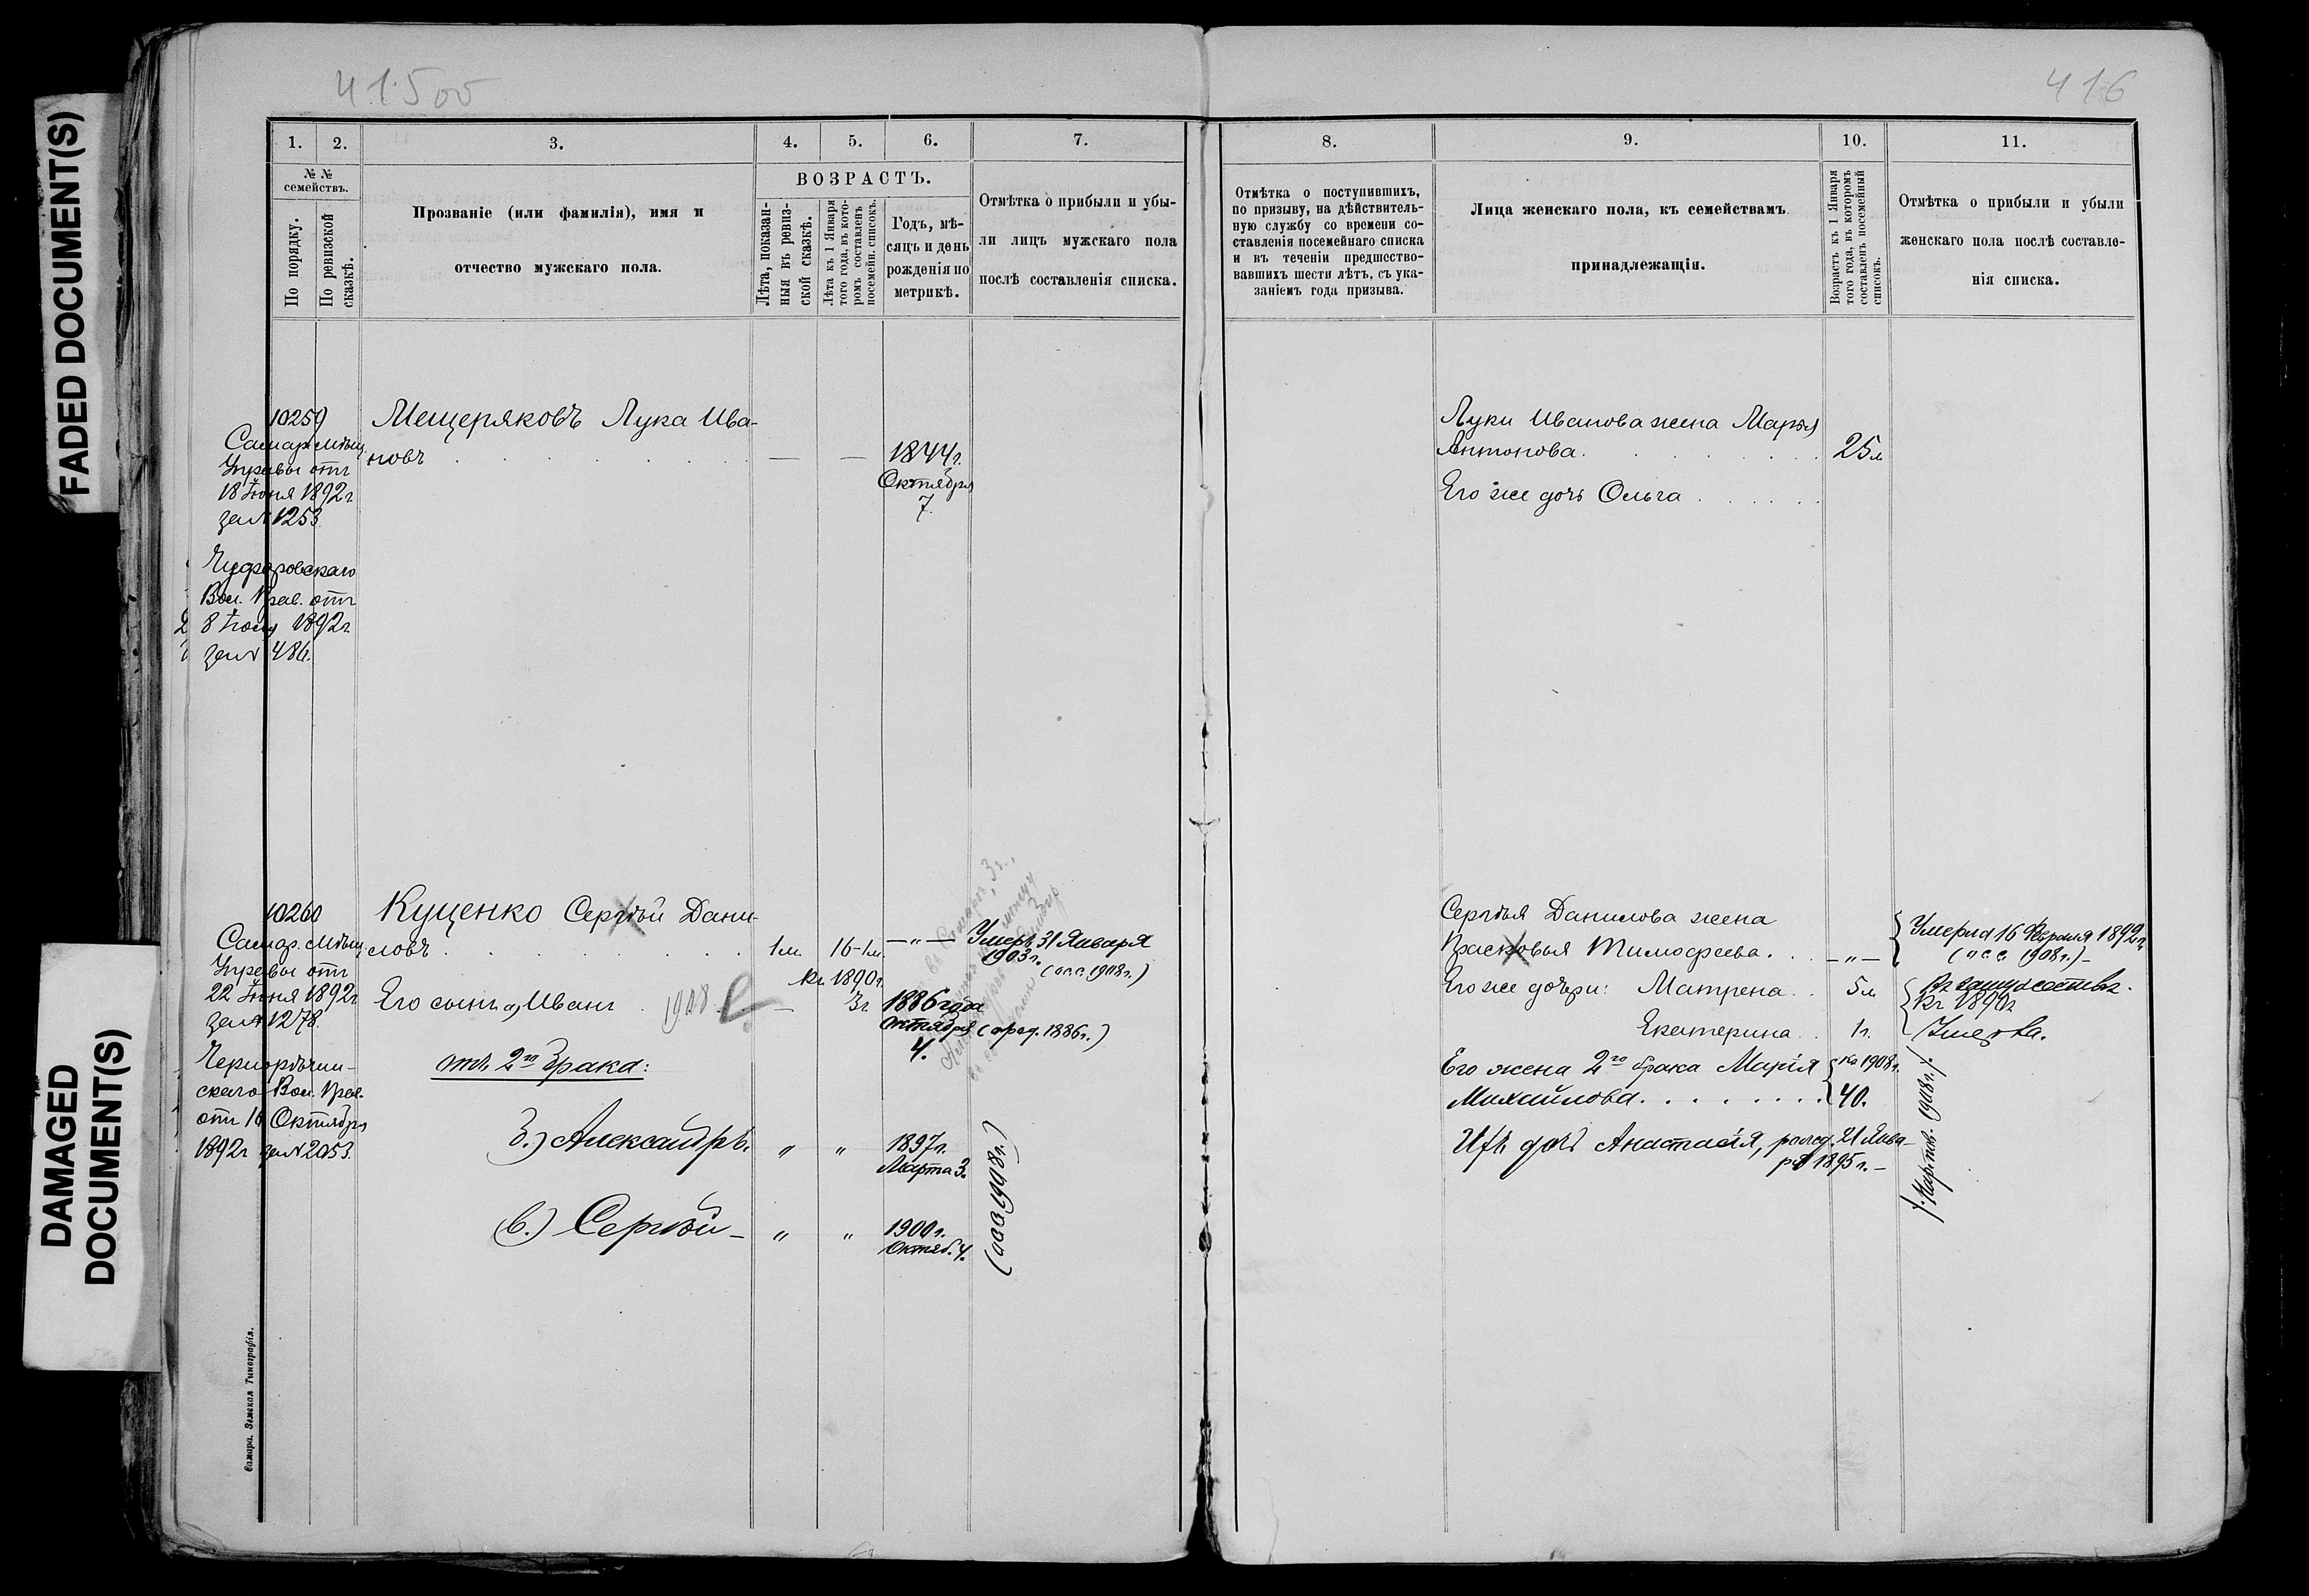 FADED DOCUMENT(S)
DAMAGED
DOCUMENT(S)
415 об
416
1. 2. 3. 4. 5. 6. 7.
№ №
семействъ.
По порядку.
По ревизской
сказкѣ.
Прозваніе (или фамилія), имя и
отчество мужскаго пола.
ВОЗРАСТЪ.
Лѣта, показан-
ныя въ ревиз-
ской сказкѣ.
Лѣта къ 1 Января
того года, въ кото-
ромъ составленъ
посемейн. списокъ.
Годъ, мѣ-
сяцъ и день
рожденія по
метрикѣ.
Отмѣтка о прибыли и убы-
ли лицъ мужскаго пола
послѣ составленія списка.
10259
Самар. Мѣщ.
Управы отъ
18 Іюня 1892 г
за № 1253
Чуфаровскаго
Вол. Прав. отъ
8 1892 г.
за № 486.
Мещеряковъ Лука Ива-
новъ — — 1844 г.
Октября
7.
10260
Самар. Мѣщ.
Управы отъ
22 Іюня 1892 г
за № 1278.
Чернорѣчин-
скаго Вол. Прав.
отъ 16 Октября
1892 г за № 2053.
Куценко Сергѣй Дани-
ловъ 1 м. 16-1 м. — „ — Умеръ 31 Января
1903 г.
(1908 г.)
Къ 1890 г.
Его сынъ а) Иванъ 1908 — 3 г. 1886 года
Октября (1886 г.)
4.
отъ 2го брака:
б.) Александръ. „ „ 1897 г.
Марта 3.
в.) Сергѣй — „ „ 1900 г.
Октяб. 4.
(1908 г.)
Самара. Земская Типографія.
8. 9. 10. 11.
Отмѣтка о поступившихъ,
по призыву, на дѣйствитель-
ную службу со времени со-
ставленія посемейнаго списка
и въ теченіи предшество-
вавшихъ шести лѣтъ, съ ука-
заніемъ года призыва.
Лица женскаго пола, къ семействамъ
принадлежащія.
Возрастъ къ 1 Января
того года, въ которомъ
составленъ посемейный
списокъ.
Отмѣтка о прибыли и убыли
женскаго пола послѣ составле-
нія списка.
Луки Иванова жена Марья
Антонова. 25 л
Его же дочь Ольга
Сергѣя Данилова жена
Прасковья Тимофеева. — „ — Умерла 16 Февраля 1892 г.
(1908 г.) —
Его же дочери: Матрена 5 л Въ замужествѣ.
Къ 1890 г
Екатерина 1 г. Умерла.
Его жена 2го брака Марія Къ 1908 г.
Михайлова 40.
Ихъ дочь Анастасія, рожд. 21 Янва-
ря 1895 г. —
1908 г.